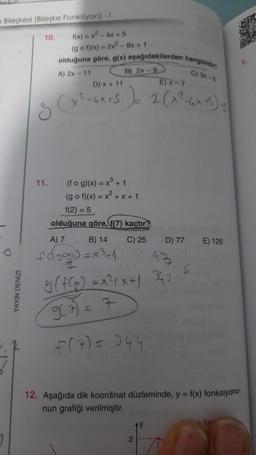 Bileşkesi (Bileşke Fonksiyon) - 1
10. f(x) = x² – 4x + 5
(g o f)(x) = 2x² – 8x + 1
olduğuna göre, g(x) aşağıdakilerden hangisidir?
A) 2x – 11 B) 2x – 9 C) 3x – 5
D) x + 11 E) x – 7
g(x²-4x+5) = 2(x²-4x+5)-9
1.
11. (f o g)(x) = x³ + 1
(g o f)(x) = x² + x + 1
f(2) = 5
olduğuna göre, f(7) kaçtır?
A) 7 B) 14 C) 25 D) 77 E) 126
f(g(x)) = x³+1
g(f(x)) = x²+x+1 343
g(5) = 7
f(7) = 344
YAYIN DENİZİ
12. Aşağıda dik koordinat düzleminde, y = f(x) fonksiyonu-
nun grafiği verilmiştir.
y
2